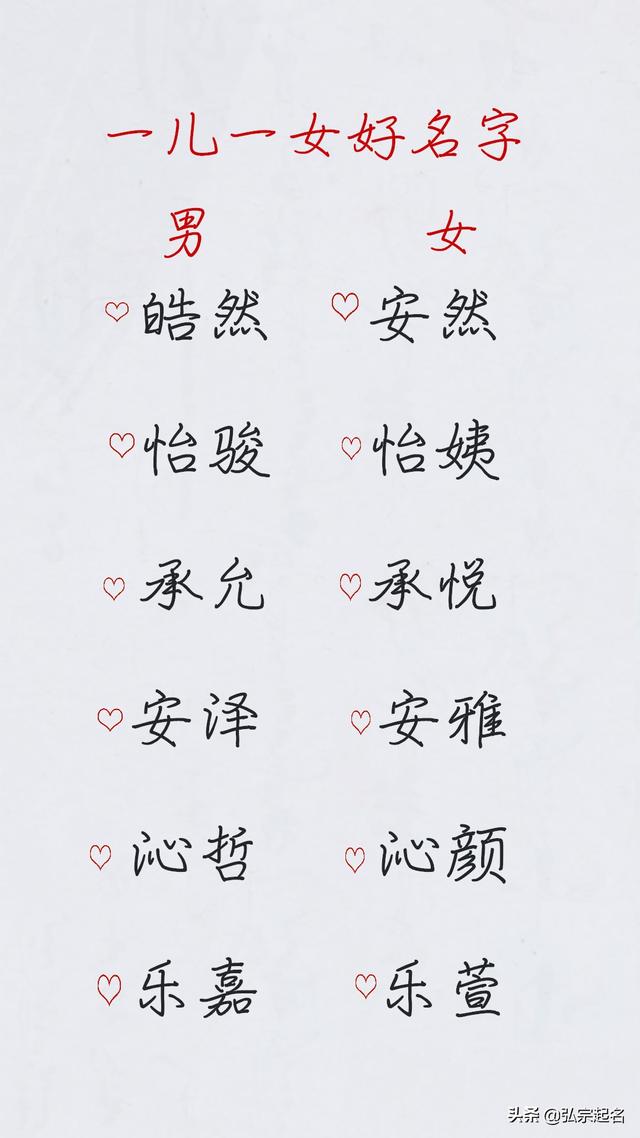 一儿一女好名字
男 女
皓然 安然
怡骏 怡姨
承允 承悦
安泽 安雅
沁哲 沁颜
乐嘉 乐萱
头条 @弘宗起名